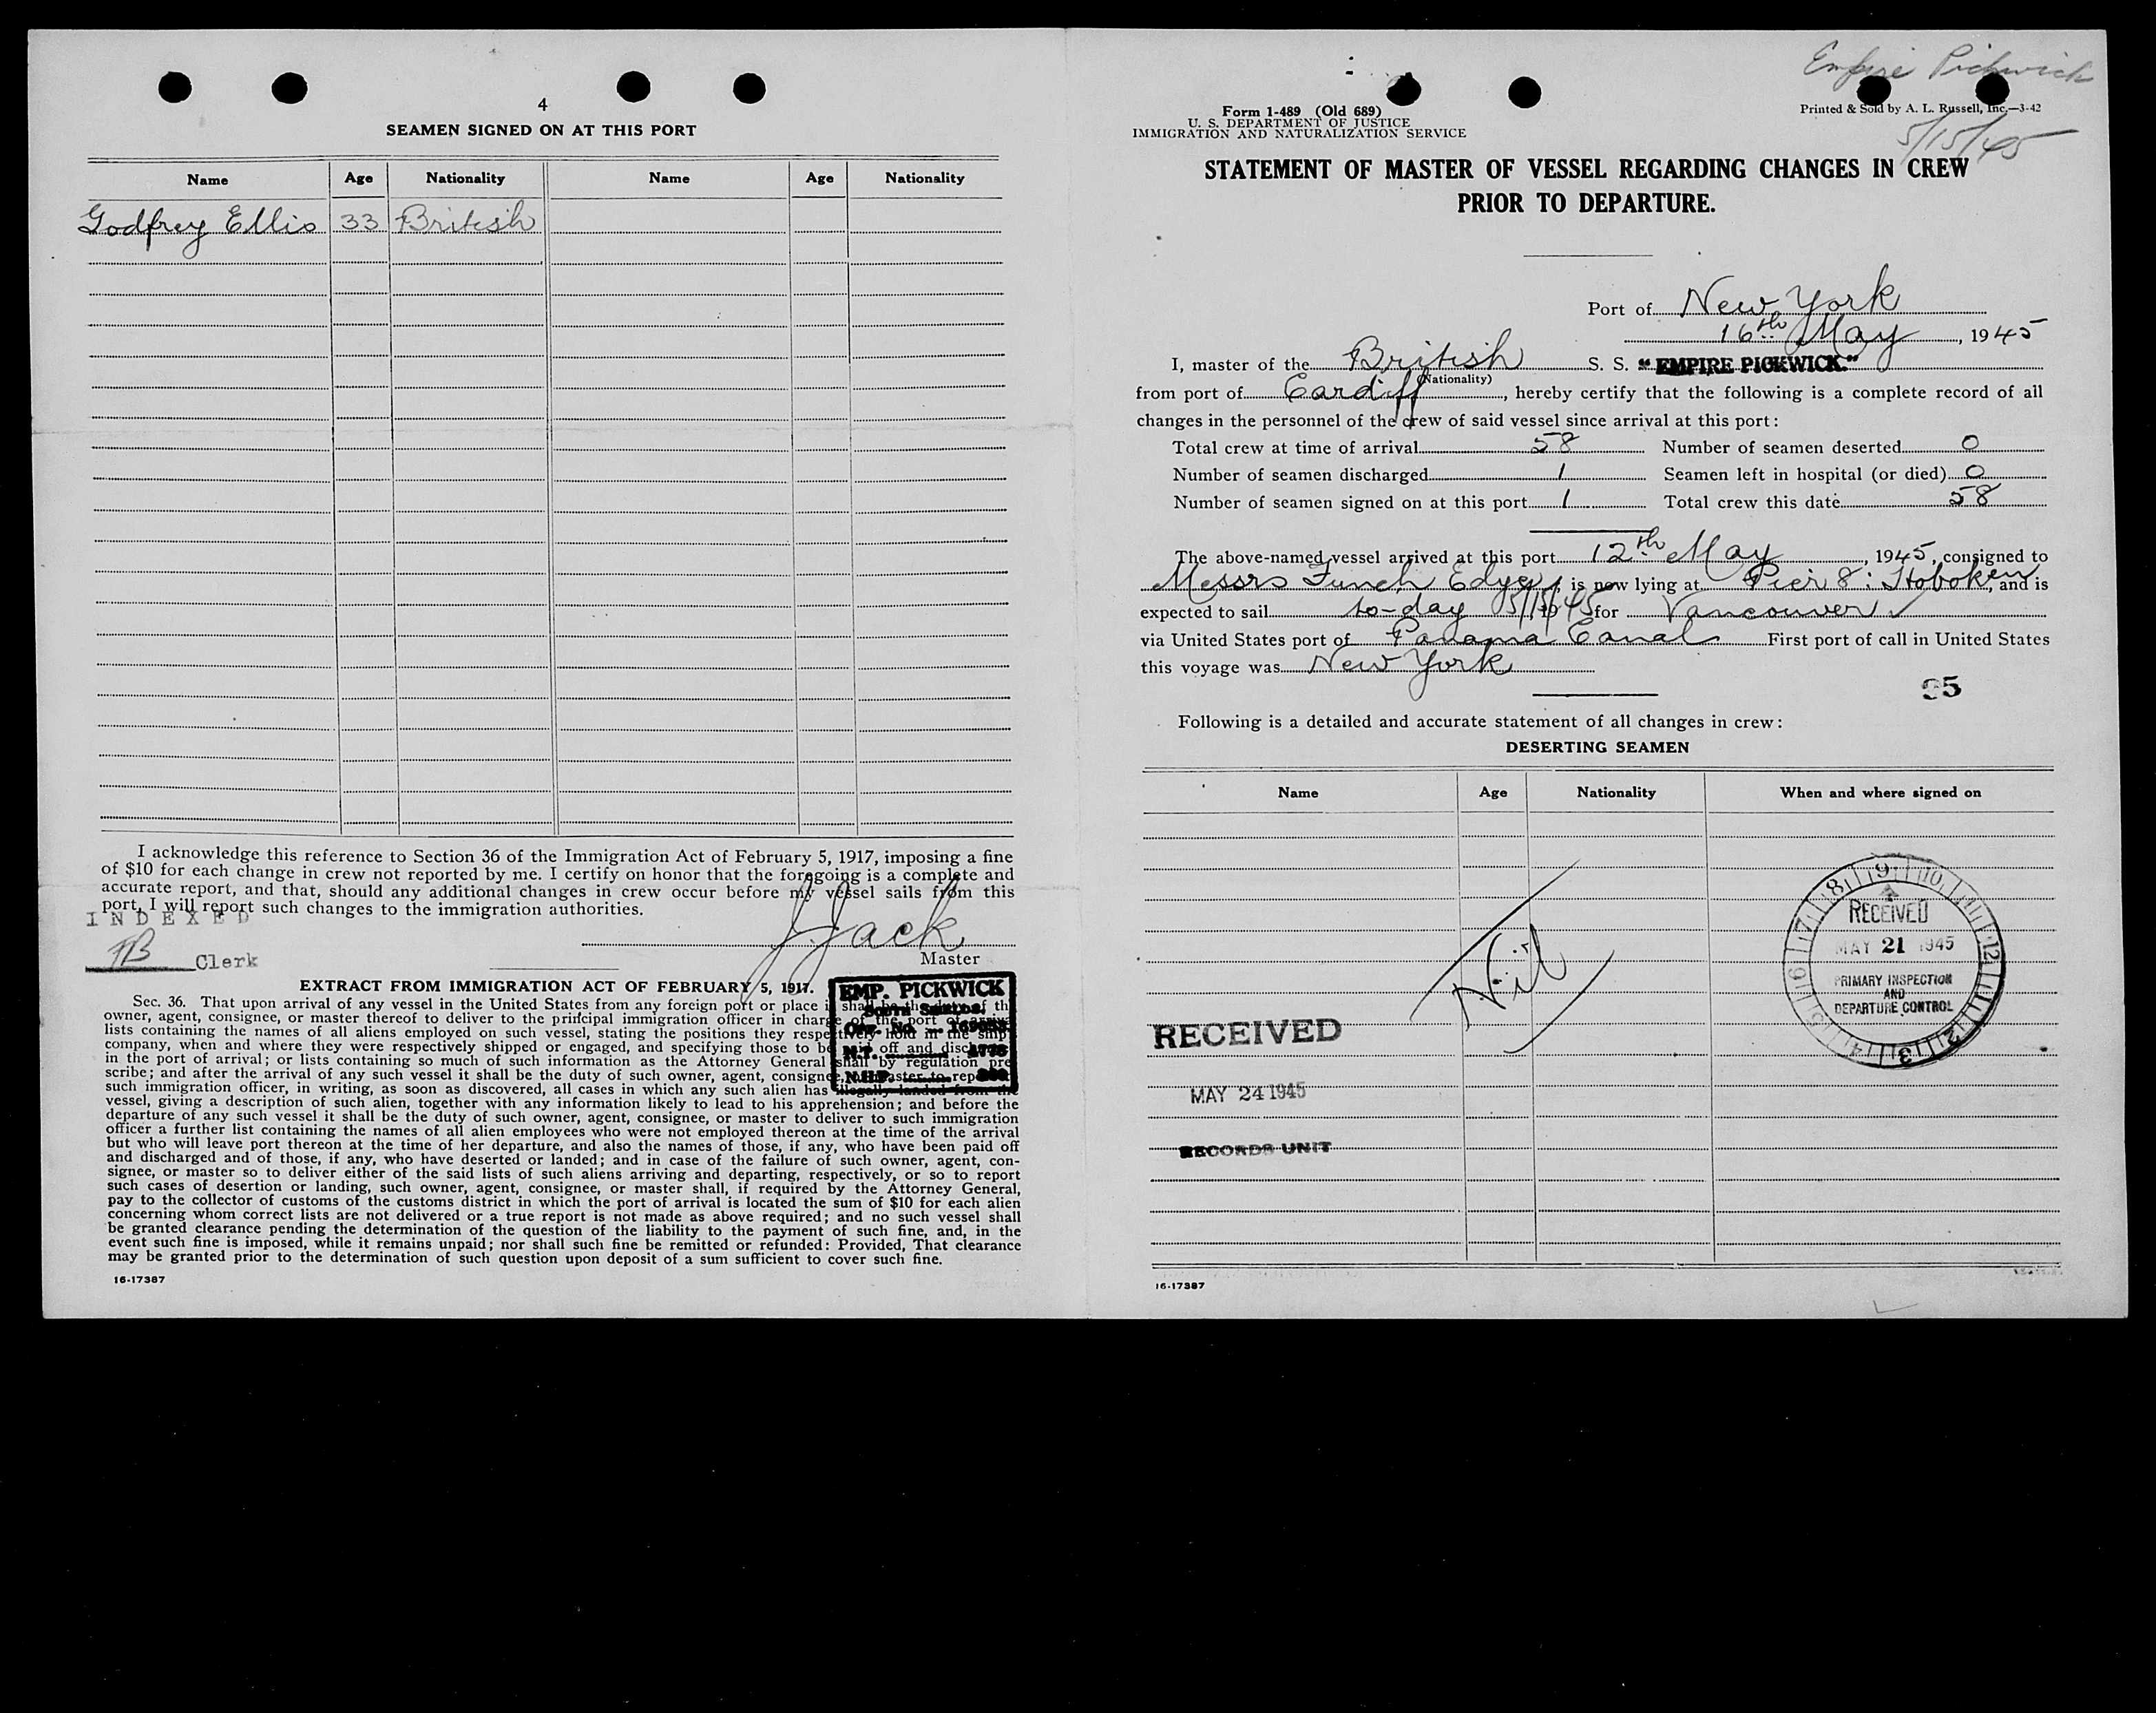 4
SEAMEN SIGNED ON AT THIS PORT
Name Age Nationality Name Age Nationality
Godfrey Ellis 33 British
I acknowledge this reference to Section 36 of the Immigration Act of February 5, 1917, imposing a fine
of $10 for each change in crew not reported by me. I certify on honor that the foregoing is a complete and
accurate report, and that, should any additional changes in crew occur before my vessel sails from this
port, I will report such changes to the immigration authorities.
INDEXED
JJack
Clerk
Master
EXTRACT FROM IMMIGRATION ACT OF FEBRUARY 5, 1917.
EMP. PICKWICK
South Shields
Off. No.
N.T.
N.H.P.
Sec. 36. That upon arrival of any vessel in the United States from any foreign port or place it shall be the duty of the
owner, agent, consignee, or master thereof to deliver to the principal immigration officer in charge of the port of arrival
lists containing the names of all aliens employed on such vessel, stating the positions they respectively hold in the ship
company, when and where they were respectively shipped or engaged, and specifying those to be off and discharged
in the port of arrival; or lists containing so much of such information as the Attorney General shall by regulation pre
scribe; and after the arrival of any such vessel it shall be the duty of such owner, agent, consignee, master to report
such immigration officer, in writing, as soon as discovered, all cases in which any such alien has illegally landed from the
vessel, giving a description of such alien, together with any information likely to lead to his apprehension; and before the
departure of any such vessel it shall be the duty of such owner, agent, consignee, or master to deliver to such immigration
officer a further list containing the names of all alien employees who were not employed thereon at the time of the arrival
but who will leave port thereon at the time of her departure, and also the names of those, if any, who have been paid off
and discharged and of those, if any, who have deserted or landed; and in case of the failure of such owner, agent, con-
signee, or master so to deliver either of the said lists of such aliens arriving and departing, respectively, or so to report
such cases of desertion or landing, such owner, agent, consignee, or master shall, if required by the Attorney General,
pay to the collector of customs of the customs district in which the port of arrival is located the sum of $10 for each alien
concerning whom correct lists are not delivered or a true report is not made as above required; and no such vessel shall
be granted clearance pending the determination of the question of the liability to the payment of such fine, and, in the
event such fine is imposed, while it remains unpaid; nor shall such fine be remitted or refunded: Provided, That clearance
may be granted prior to the determination of such question upon deposit of a sum sufficient to cover such fine.
16-17387
Empire Pickwick
5/15/45
Form 1-489 (Old 689)
U. S. DEPARTMENT OF JUSTICE
IMMIGRATION AND NATURALIZATION SERVICE
Printed & Sold by A. L. Russell, Inc.—3-42
STATEMENT OF MASTER OF VESSEL REGARDING CHANGES IN CREW
PRIOR TO DEPARTURE.
Port of New York
16th May, 1945
I, master of the British S. S. "EMPIRE PICKWICK."
(Nationality)
from port of Cardiff, hereby certify that the following is a complete record of all
changes in the personnel of the crew of said vessel since arrival at this port:
Total crew at time of arrival 58 Number of seamen deserted 0
Number of seamen discharged 1 Seamen left in hospital (or died) 0
Number of seamen signed on at this port 1 Total crew this date 58
The above-named vessel arrived at this port 12th May, 1945, consigned to
Messrs Funch Edye, is now lying at Pier 8: Hoboken, and is
expected to sail to-day 5/15/45 for Vancouver
via United States port of Panama Canal First port of call in United States
this voyage was New York
95
Following is a detailed and accurate statement of all changes in crew:
DESERTING SEAMEN
Name Age Nationality When and where signed on
Nil
7 8 9 10 11 12
RECEIVED
MAY 21 1945
PRIMARY INSPECTION
AND
DEPARTURE CONTROL
6 5 4 3 2
RECEIVED
MAY 24 1945
RECORDS UNIT
16-17387